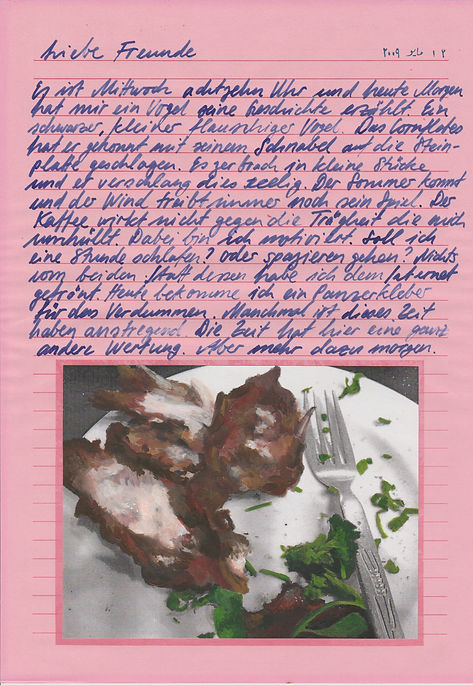 Liebe Freunde ١٢ مايو ٢٠٠٩
Es ist Mittwoch achtzehn Uhr und heute Morgen
hat mir ein Vogel seine Geschichte erzählt. Ein
schwarzer, kleiner flauschiger Vogel. Das Cornflakes
hat er gekonnt mit seinem Schnabel auf die Stein-
platte geschlagen. Es zerbrach in kleine Stücke
und er verschlang dies seelig. Der Sommer kommt
und der Wind treibt immer noch sein Spiel. Der
Kaffee wirkt nicht gegen die Trägheit die mich
umhüllt. Dabei bin ich motiviert. Soll ich
eine Stunde schlafen? oder spazieren gehen? Nichts
von beiden. Statt dessen habe ich dem Internet
gefrönt. Heute bekomme ich ein Panzerkleber
für das Verdummen. Manchmal ist dieses Zeit
haben anstregend. Die Zeit hat hier eine ganz
andere Wertung. Aber mehr dazu morgen.